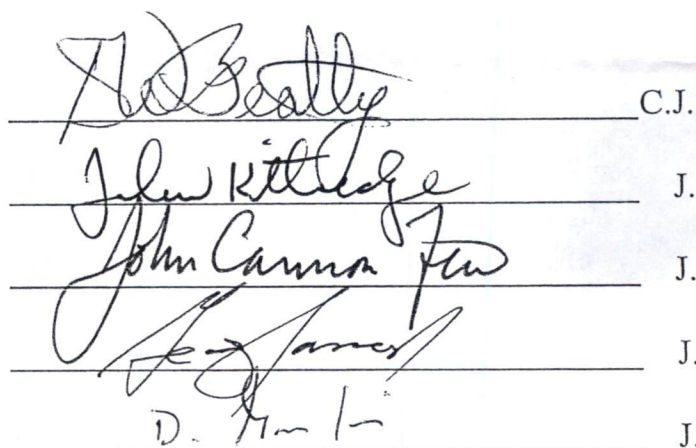 Beatty C.J.
John Kittredge J.
John Cannon Few J.
James J.
D. J.